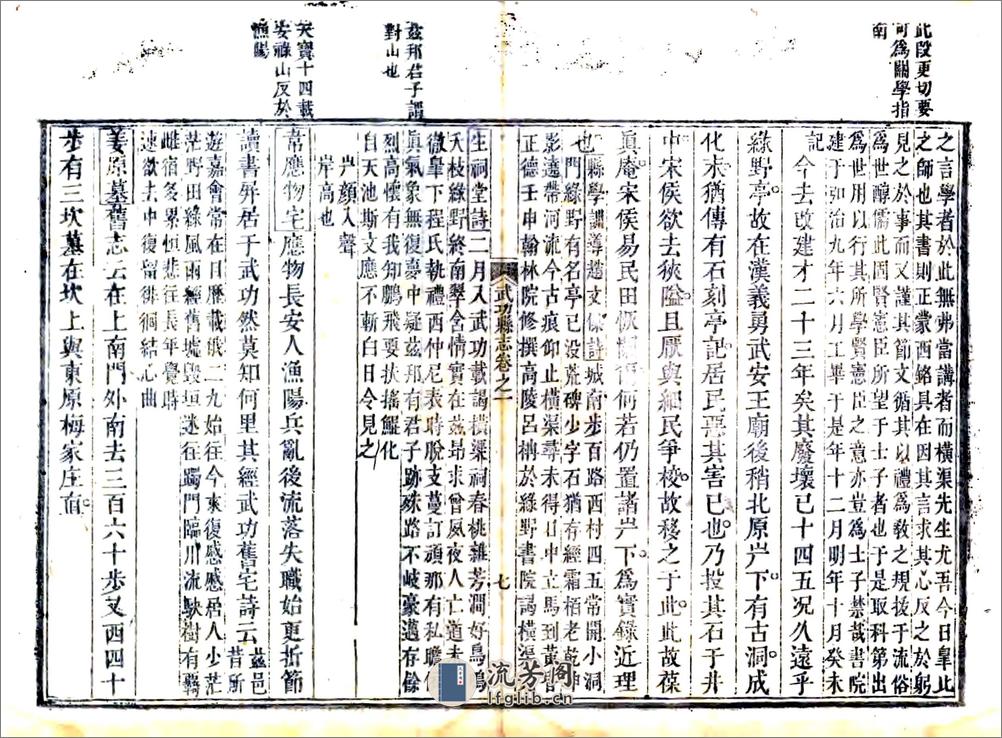 此段更切要
可為關學指
南
之言學者於此無弗當講者而橫渠先生尤吾今日臯比
之師也其書則正蒙西銘具在因其言求其心反之於躬
見之於事而又謹其節文循其以禮為教之規拔于流俗
為世醇儒此固賢憲臣所望于士子者也于是取科第出
為世用以行其所學賢憲臣之意亦豈為士子禁哉書院
建于弘治九年六月工畢于是年十二月明年十月癸未
記
今去改建才二十三年矣其廢壞已十四五况久遠乎
綠野亭故在漢義勇武安王廟後稍北原岸下有古洞成
化末猶傳有石刻亭記居民惡其害已也乃投其石于井
中宋侯欲去狹隘且厭與細民爭校故移之于此此故葆
真庵宋侯易民田
何若仍置諸岸下為實錄近理
也
縣學訓導趙文
詩
城南步百路西村四五常開小洞
門綠野有名亭已没荒碑少字石猶有經霜栢老乾坤
影遠帶河流今古痕仰止橫渠尋未得日中立馬到黃昏
正德壬申翰林院修撰高陵呂柟於綠野書院謁橫渠
武功縣志卷之一
七
兹邦君子謂
對山也
生祠堂詩
二月入武功載謁橫渠祠春桃雜芳澗好鳥鳴
大枝綠野終南翠含情實在兹昂求曾夙夜人亡道未
徹臯下程氏執禮西仲尼表時脫支蔓訂頑那有私瞻
真氣象無復憂中疑兹邦有君子跡殊路不岐豪邁存餘
烈高懷有我知鵬飛要扶搖鯤化
自天池斯文應不斬白日令見之
岸顔入聲
岸高也
天寶十四載
安祿山反於
漁陽
韋應物宅
應物長安人漁陽兵亂後流落失職始更折節
讀書屏居于武功然莫知何里其經武功舊宅詩云
兹邑
昔所
遊嘉會常在日歷載俄二九始往今來復感感居人少茫
茫野田綠風雨經舊墟毀垣迷往躅門臨川流駛樹有羈
雌宿多累恒悲往長年覺時
速欲去中復留徘徊結心
曲
姜原墓
舊志云在上南門外南去三百六十步又西四十
步有三坎墓在坎上與東原梅家庄直
流芳阁
lfglib.com